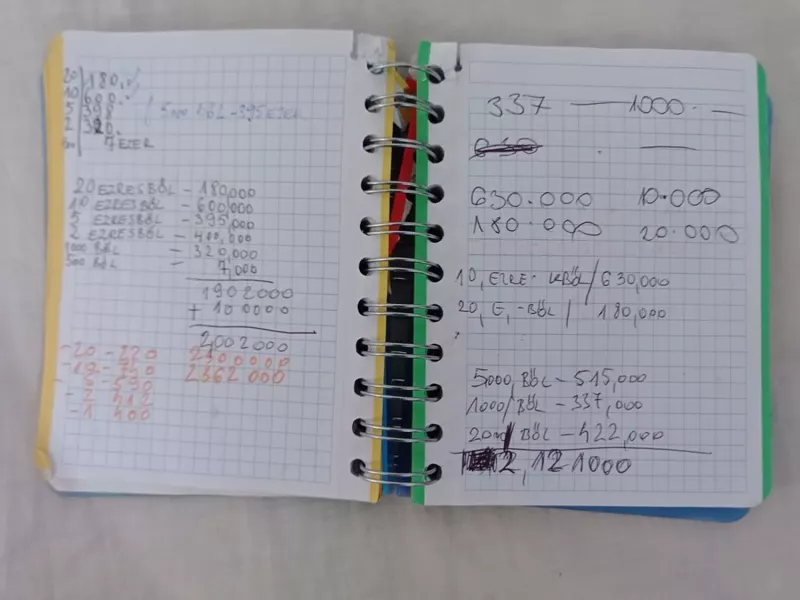 20 | 180.
10 | 600.
5 | 398
2 | 320.
7 EZER
20 EZRESBŐL - 180,000
10 EZRESBŐL - 600,000
5 EZRESBŐL - 395,000
2 EZRESBŐL - 400,000
1000 BŐL = 320,000
500 BŐL = 7,000
1902000
+ 100000
2002000
-20 - 220 2300000
-10 - 740 2362 000
- 5 - 590
- 2 412
- 1 400
337 — 1000. —
630.000 10.000
180.000 20.000
10, EZRE. KBŐL / 630,000
20, E, -BŐL / 180,000
5000, BŐL - 515,000
1000/BŐL - 337,000
2000/BŐL - 422,000
2,121000